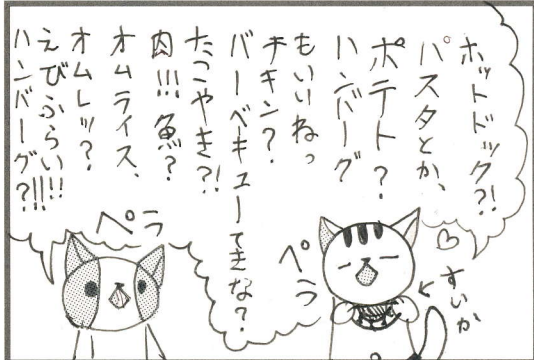 ホットドック?!
パスタとか、
ポテト?
ハンバーグ
もいいねっ
チキン?
バーベキューてきな?
たこやき?!
肉!!! 魚?
オムライス、
オムレツ?
えびふらい!!
ハンバーグ?!!!
ペラ
ペラ
すいか